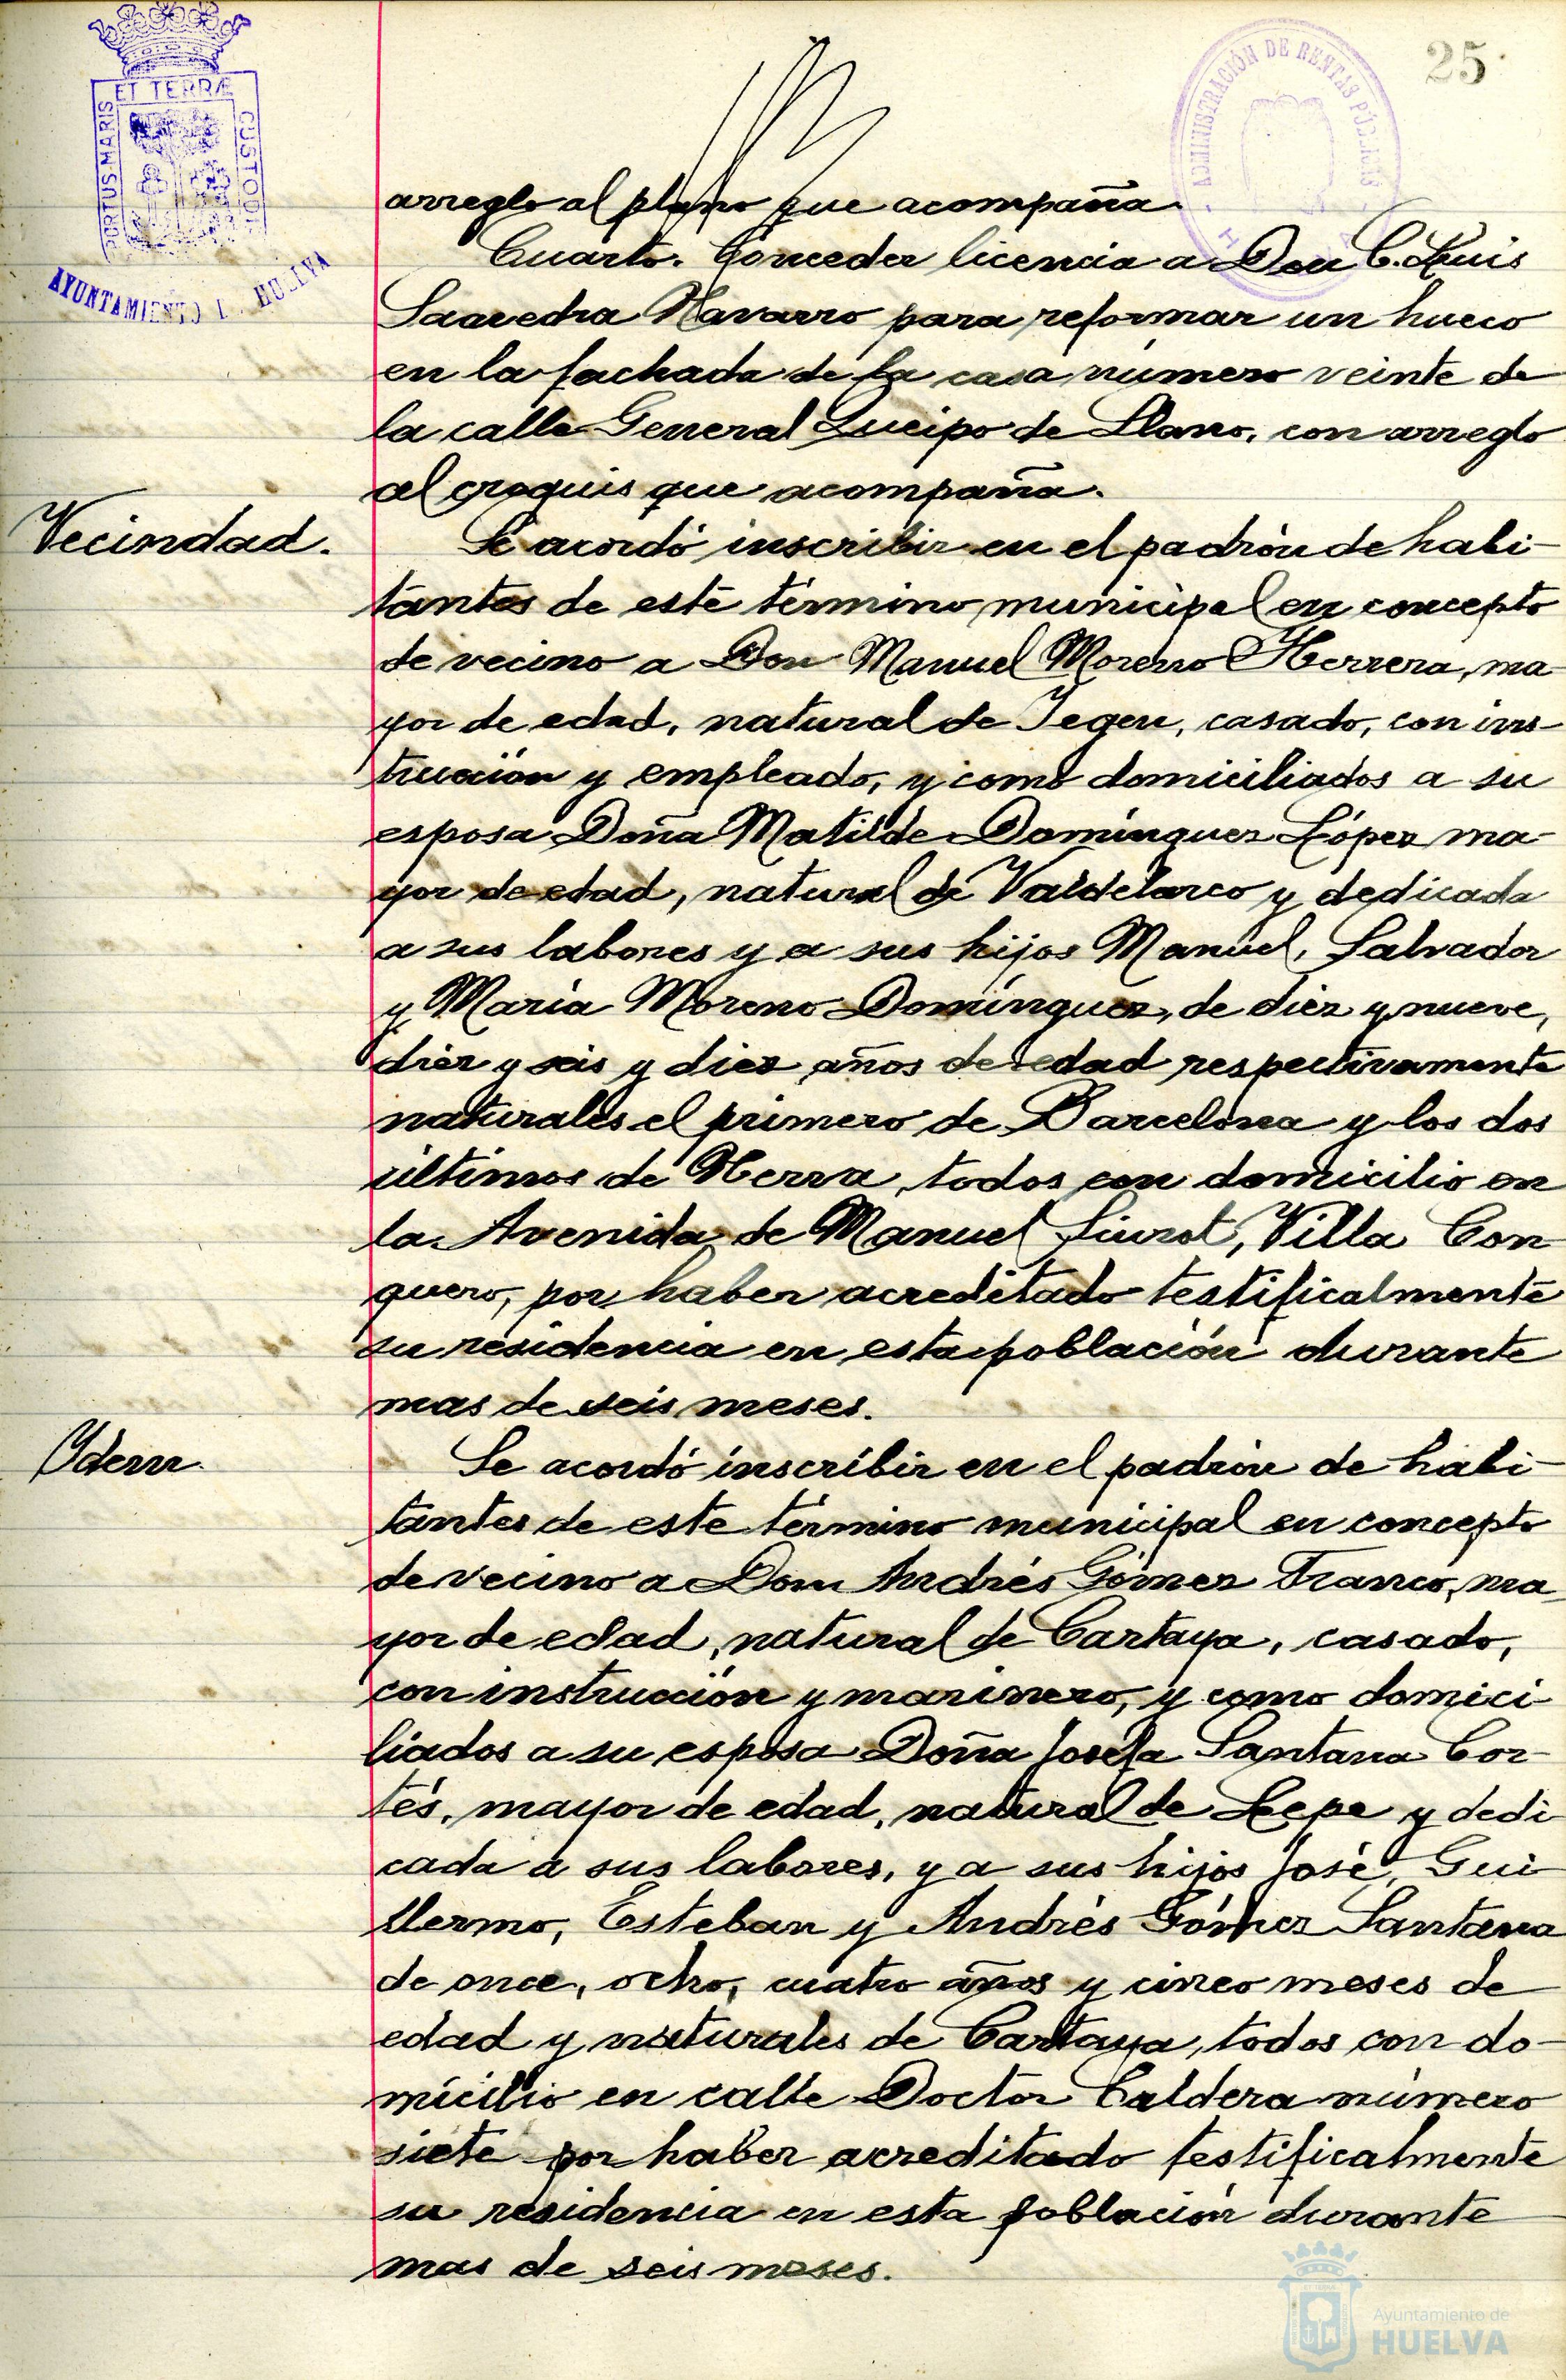 25
ET TERRÆ
PORTUS MARIS
CUSTODIA
AYUNTAMIENTO DE HUELVA
ADMINISTRACIÓN DE RENTAS PÚBLICAS
arreglo al plano que acompaña.
Cuarto. Conceder licencia a Don C. Luis
Saavedra Navarro para reformar un hueco
en la fachada de la casa número veinte de
la calle General Queipo de Llano, con arreglo
al croquis que acompaña.
Vecindad.
Se acordó inscribir en el padrón de habi-
tantes de este término municipal en concepto
de vecino a Don Manuel Moreno Herrera, ma-
yor de edad, natural de Yegen, casado, con ins-
trucción y empleado, y como domiciliados a su
esposa Doña Matilde Domínguez López ma-
yor de edad, natural de Valdelarco y dedicada
a sus labores y a sus hijos Manuel, Salvador
y María Moreno Domínguez, de diez y nueve,
diez y seis y diez años de edad respectivamente
naturales el primero de Barcelona y los dos
últimos de Nerva, todos con domicilio en
la Avenida de Manuel Siurot, Villa Con
quero, por haber acreditado testificalmente
su residencia en esta población durante
mas de seis meses.
Ydem.
Se acordó inscribir en el padrón de habi-
tantes de este término municipal en concepto
de vecino a Don Andrés Gómez Franco, ma-
yor de edad, natural de Cartaya, casado,
con instrucción y marinero, y como domici-
liados a su esposa Doña Josefa Santana Cor-
tés, mayor de edad, natural de Lepe y dedi-
cada a sus labores, y a sus hijos José, Gui
llermo, Esteban y Andrés Gómez Santana
de once, ocho, cuatro años y cinco meses de
edad y naturales de Cartaya, todos con do-
micilio en calle Doctor Caldera número
siete por haber acreditado testificalmente
su residencia en esta población durante
mas de seis meses.
Ayuntamiento de
HUELVA